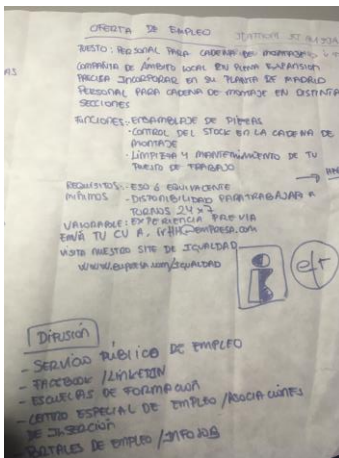 OFERTA DE EMPLEO
PUESTO: PERSONAL PARA CADENA DE MONTAJE
COMPAÑÍA DE ÁMBITO LOCAL EN PLENA EXPANSIÓN
PRECISA INCORPORAR EN SU PLANTA DE MADRID
PERSONAL PARA CADENA DE MONTAJE EN DISTINTA
SECCIONES
FUNCIONES: - ENSAMBLAJE DE PIEZAS
- CONTROL DEL STOCK EN LA CADENA DE
MONTAJE
- LIMPIEZA Y MANTENIMIENTO DE TU
PUESTO DE TRABAJO
REQUISITOS: - ESO ó EQUIVALENTE
MÍNIMOS - DISPONIBILIDAD PARA TRABAJAR A
TURNOS 24x7
VALORABLE: EXPERIENCIA PREVIA
ENVÍA TU CV A: rrhh@empresa.com
VISITA NUESTRO SITE DE IGUALDAD
www.empresa.com/IGUALDAD
efr
DIFUSIÓN
- SERVICIO PÚBLICO DE EMPLEO
- FACEBOOK / LINKEDIN
- ESCUELAS DE FORMACIÓN
- CENTRO ESPECIAL DE EMPLEO / ASOCIACIONES
DE INSERCIÓN
- PORTALES DE EMPLEO / INFOJOB